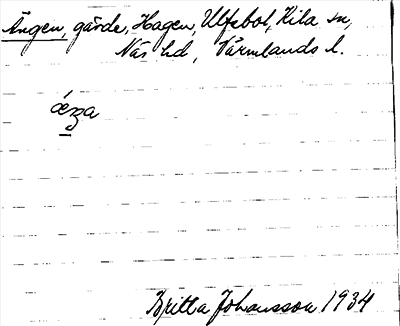 Ängen, gärde, Hagen, Ulfebol, Kila sn,
Näs hd, Värmlands l.
Britta Johansson 1934